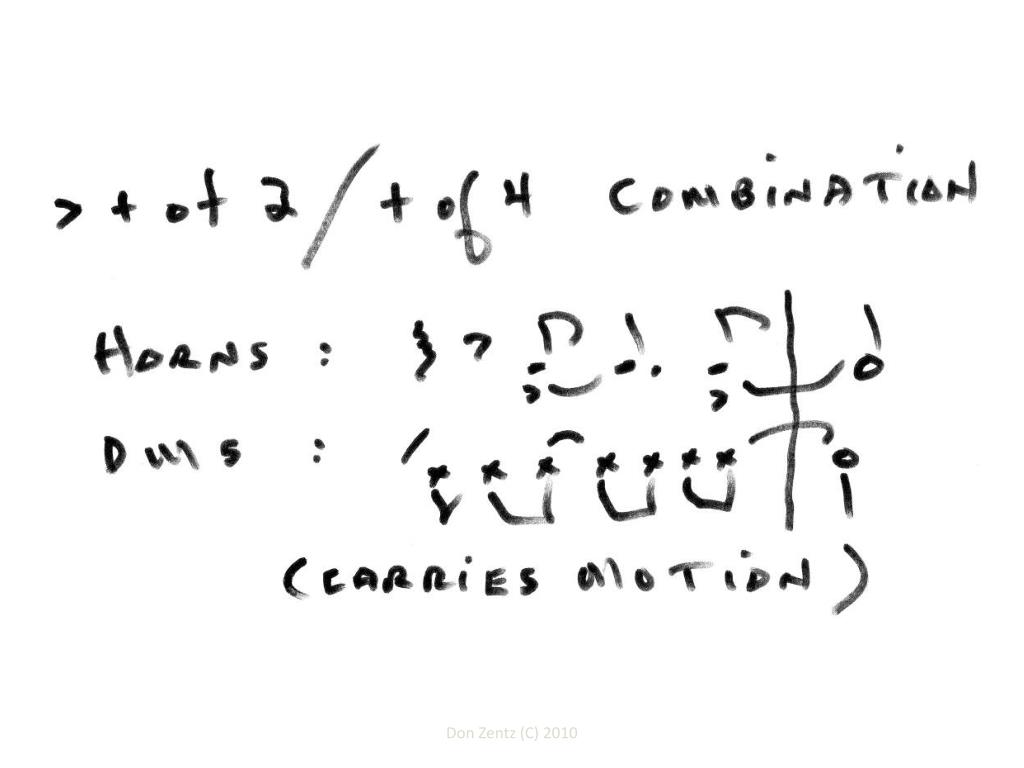 > + of 2 / + of 4 COMBINATION
HORNS :
DMS :
(CARRIES MOTION)
Don Zentz (C) 2010